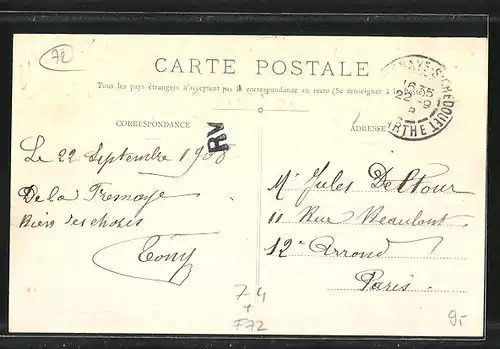 72
CARTE POSTALE
Tous les pays étrangers n'acceptent pas la correspondance au recto (Se renseigner à la Poste)
CORRESPONDANCE
ADRESSE
RV
16 35
22 - 9
Le 22 Septembre 1908
De la Fresnaye
Bien des choses
Tony
Mr Jules Deltour
11 Rue Beaulant
12e Arrond
Paris
74
+
F72
9-